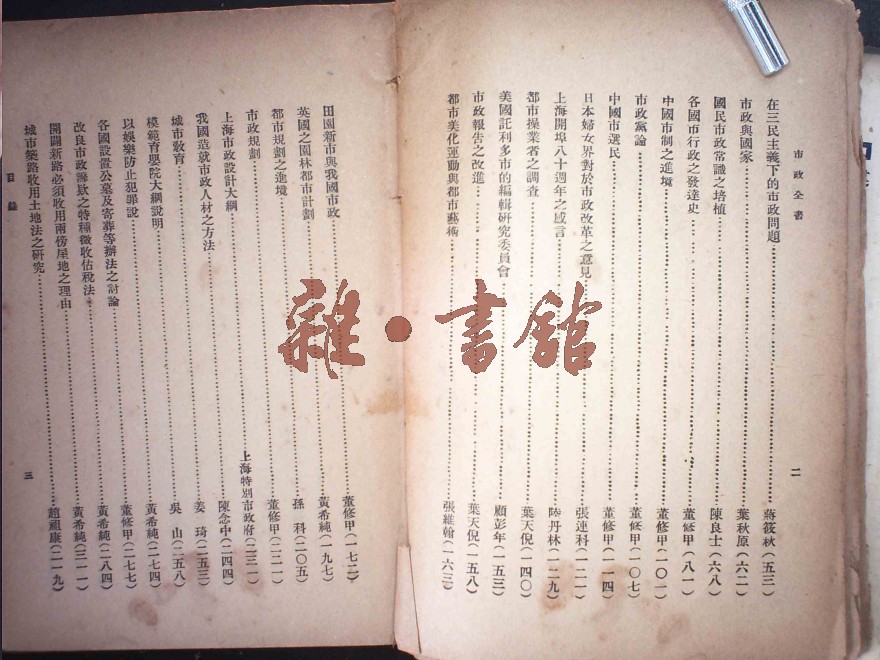 市政全書
在三民主義下的市政問題……蔣筱秋(五三)
市政與國家……葉秋原(六二)
國民市政常識之培植……陳良士(六八)
各國市行政之發達史……董修甲(八一)
中國市制之進境……董修甲(一〇一)
市政黨論……董修甲(一〇七)
中國市選民……董修甲(一一四)
日本婦女界對於市政改革之意見……張連科(一二一)
上海開埠八十週年之感言……陸丹林(一二九)
都市操業零之調查……葉天倪(一四〇)
美國託利多市的編輯研究委員會……顧彭年(一五三)
市政報告之改進……葉天倪(一五八)
都市美化運動與都市藝術……張維翰(一六三)
二
田園新市與我國市政……董修甲(一七二)
英國之園林都市計劃……黃希純(一九七)
都市規劃之進境……孫科(二〇五)
市政規劃……董修甲(二二一)
上海市政設計大綱……上海特別市政府(二三一)
我國造就市政人材之方法……陳念中(二四四)
城市教育……姜琦(二五三)
模範育嬰院大綱說明……吳山(二五八)
以娛樂防止犯罪說……黃希純(二七四)
各國設置公墓及寄葬等辦法之討論……董修甲(二七七)
改良市政籌款之特種徵收估稅法……黃希純(二八四)
開闢新路必須收用兩傍屋地之理由……黃希純(三一一)
城市築路收用土地法之研究……趙祖康(三一九)
目錄
三
雜·書館